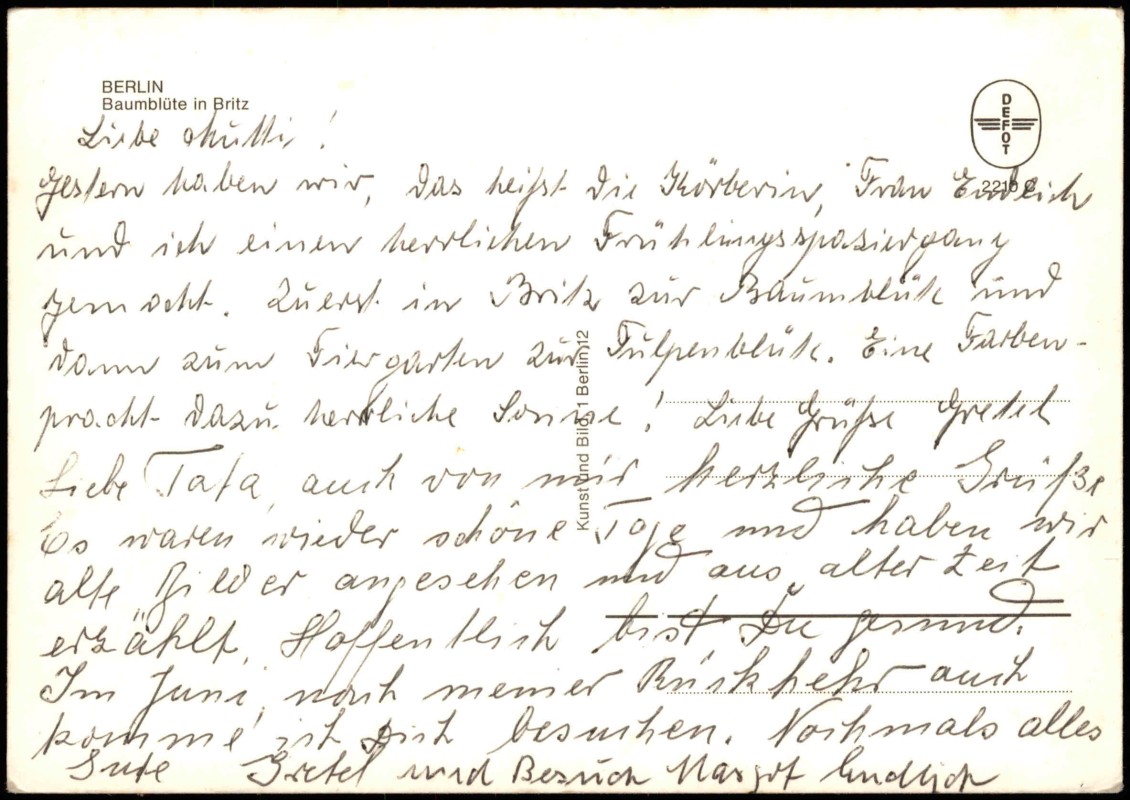 BERLIN
Baumblüte in Britz
DEFOT
2210 C
Liebe Mutti!
Gestern haben wir, das heißt die Körberin, Frau Endlich
und ich einen herrlichen Frühlingsspaziergang
gemacht. Zuerst in Britz zur Baumblüte und
dann zum Tiergarten zur Tulpenblüte. Eine Farben-
pracht dazu herrliche Sonne! Liebe Grüße Gretel
Liebe Tata, auch von mir herzliche Grüße
Es waren wieder schöne Tage und haben wir
alte Bilder angesehen und aus alter Zeit
erzählt. Hoffentlich bist Du gesund.
Im Juni, nach meiner Rückkehr auch
komme ich Dich besuchen. Nochmals alles
Gute Gretel und Besuch Margot Endlich
Kunst und Bild, 1 Berlin 12